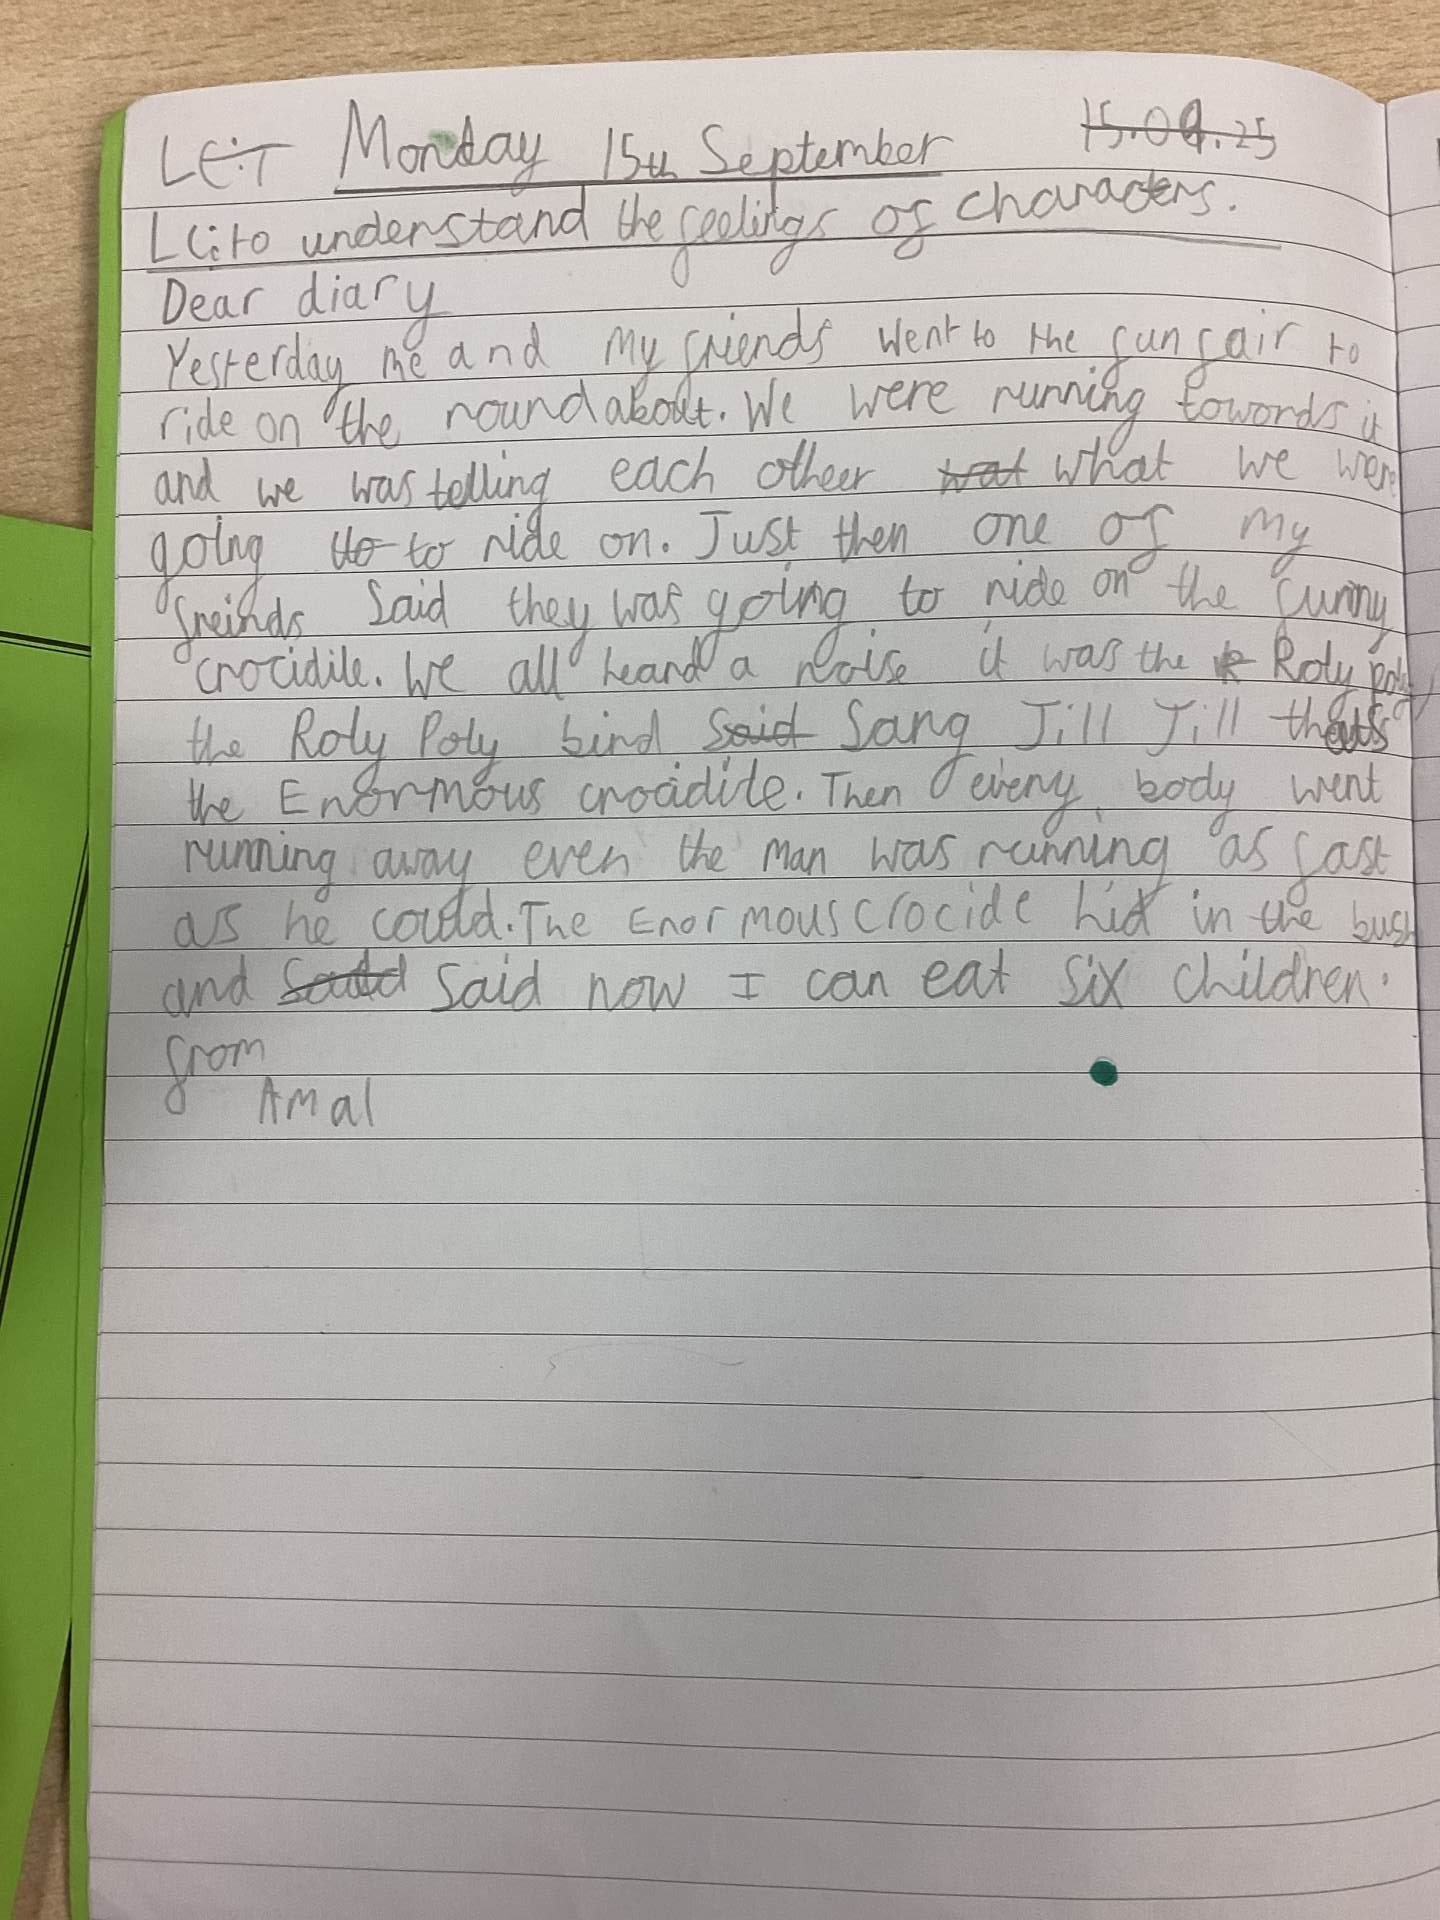 LC:T Monday 15th September 15.09.25
LC: to understand the feelings of characters.
Dear diary
Yesterday me and my friends went to the funfair to
ride on the roundabout. We were running towords it
and we was telling each otheer wat what we were
going to to ride on. Just then one of my
freinds said they was going to ride on the funny
crocidile. We all heard a noise it was the Roly poly
the Roly Poly bird Said Sang Jill Jill thats
the Enormous crocidile. Then every body went
running away even the man was running as fast
as he could. The Enormous crocide hid in the bush
and said now I can eat six children.
from
Amal